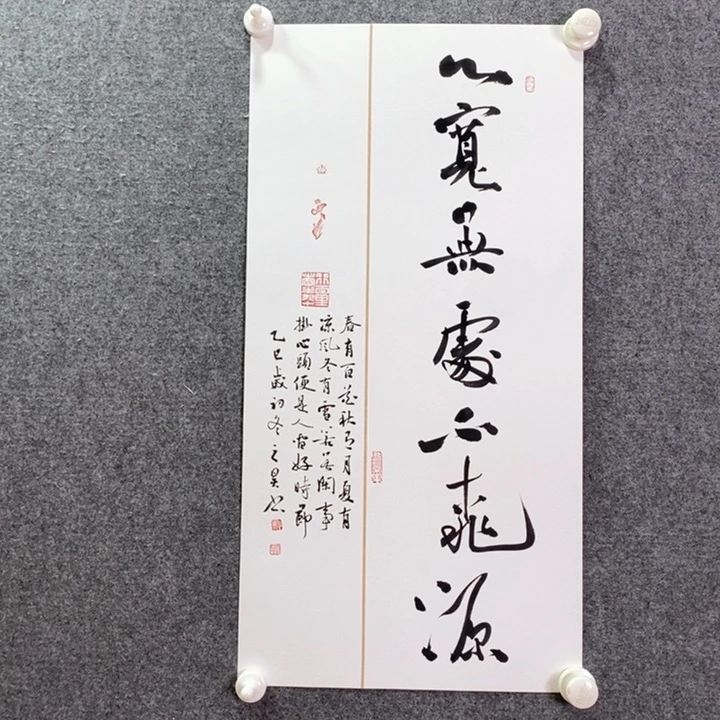 心寬無處不桃源
春有百花秋有月夏有
凉風冬有雪若無閑事
掛心頭便是人間好時節
乙巳歲初冬之昊书